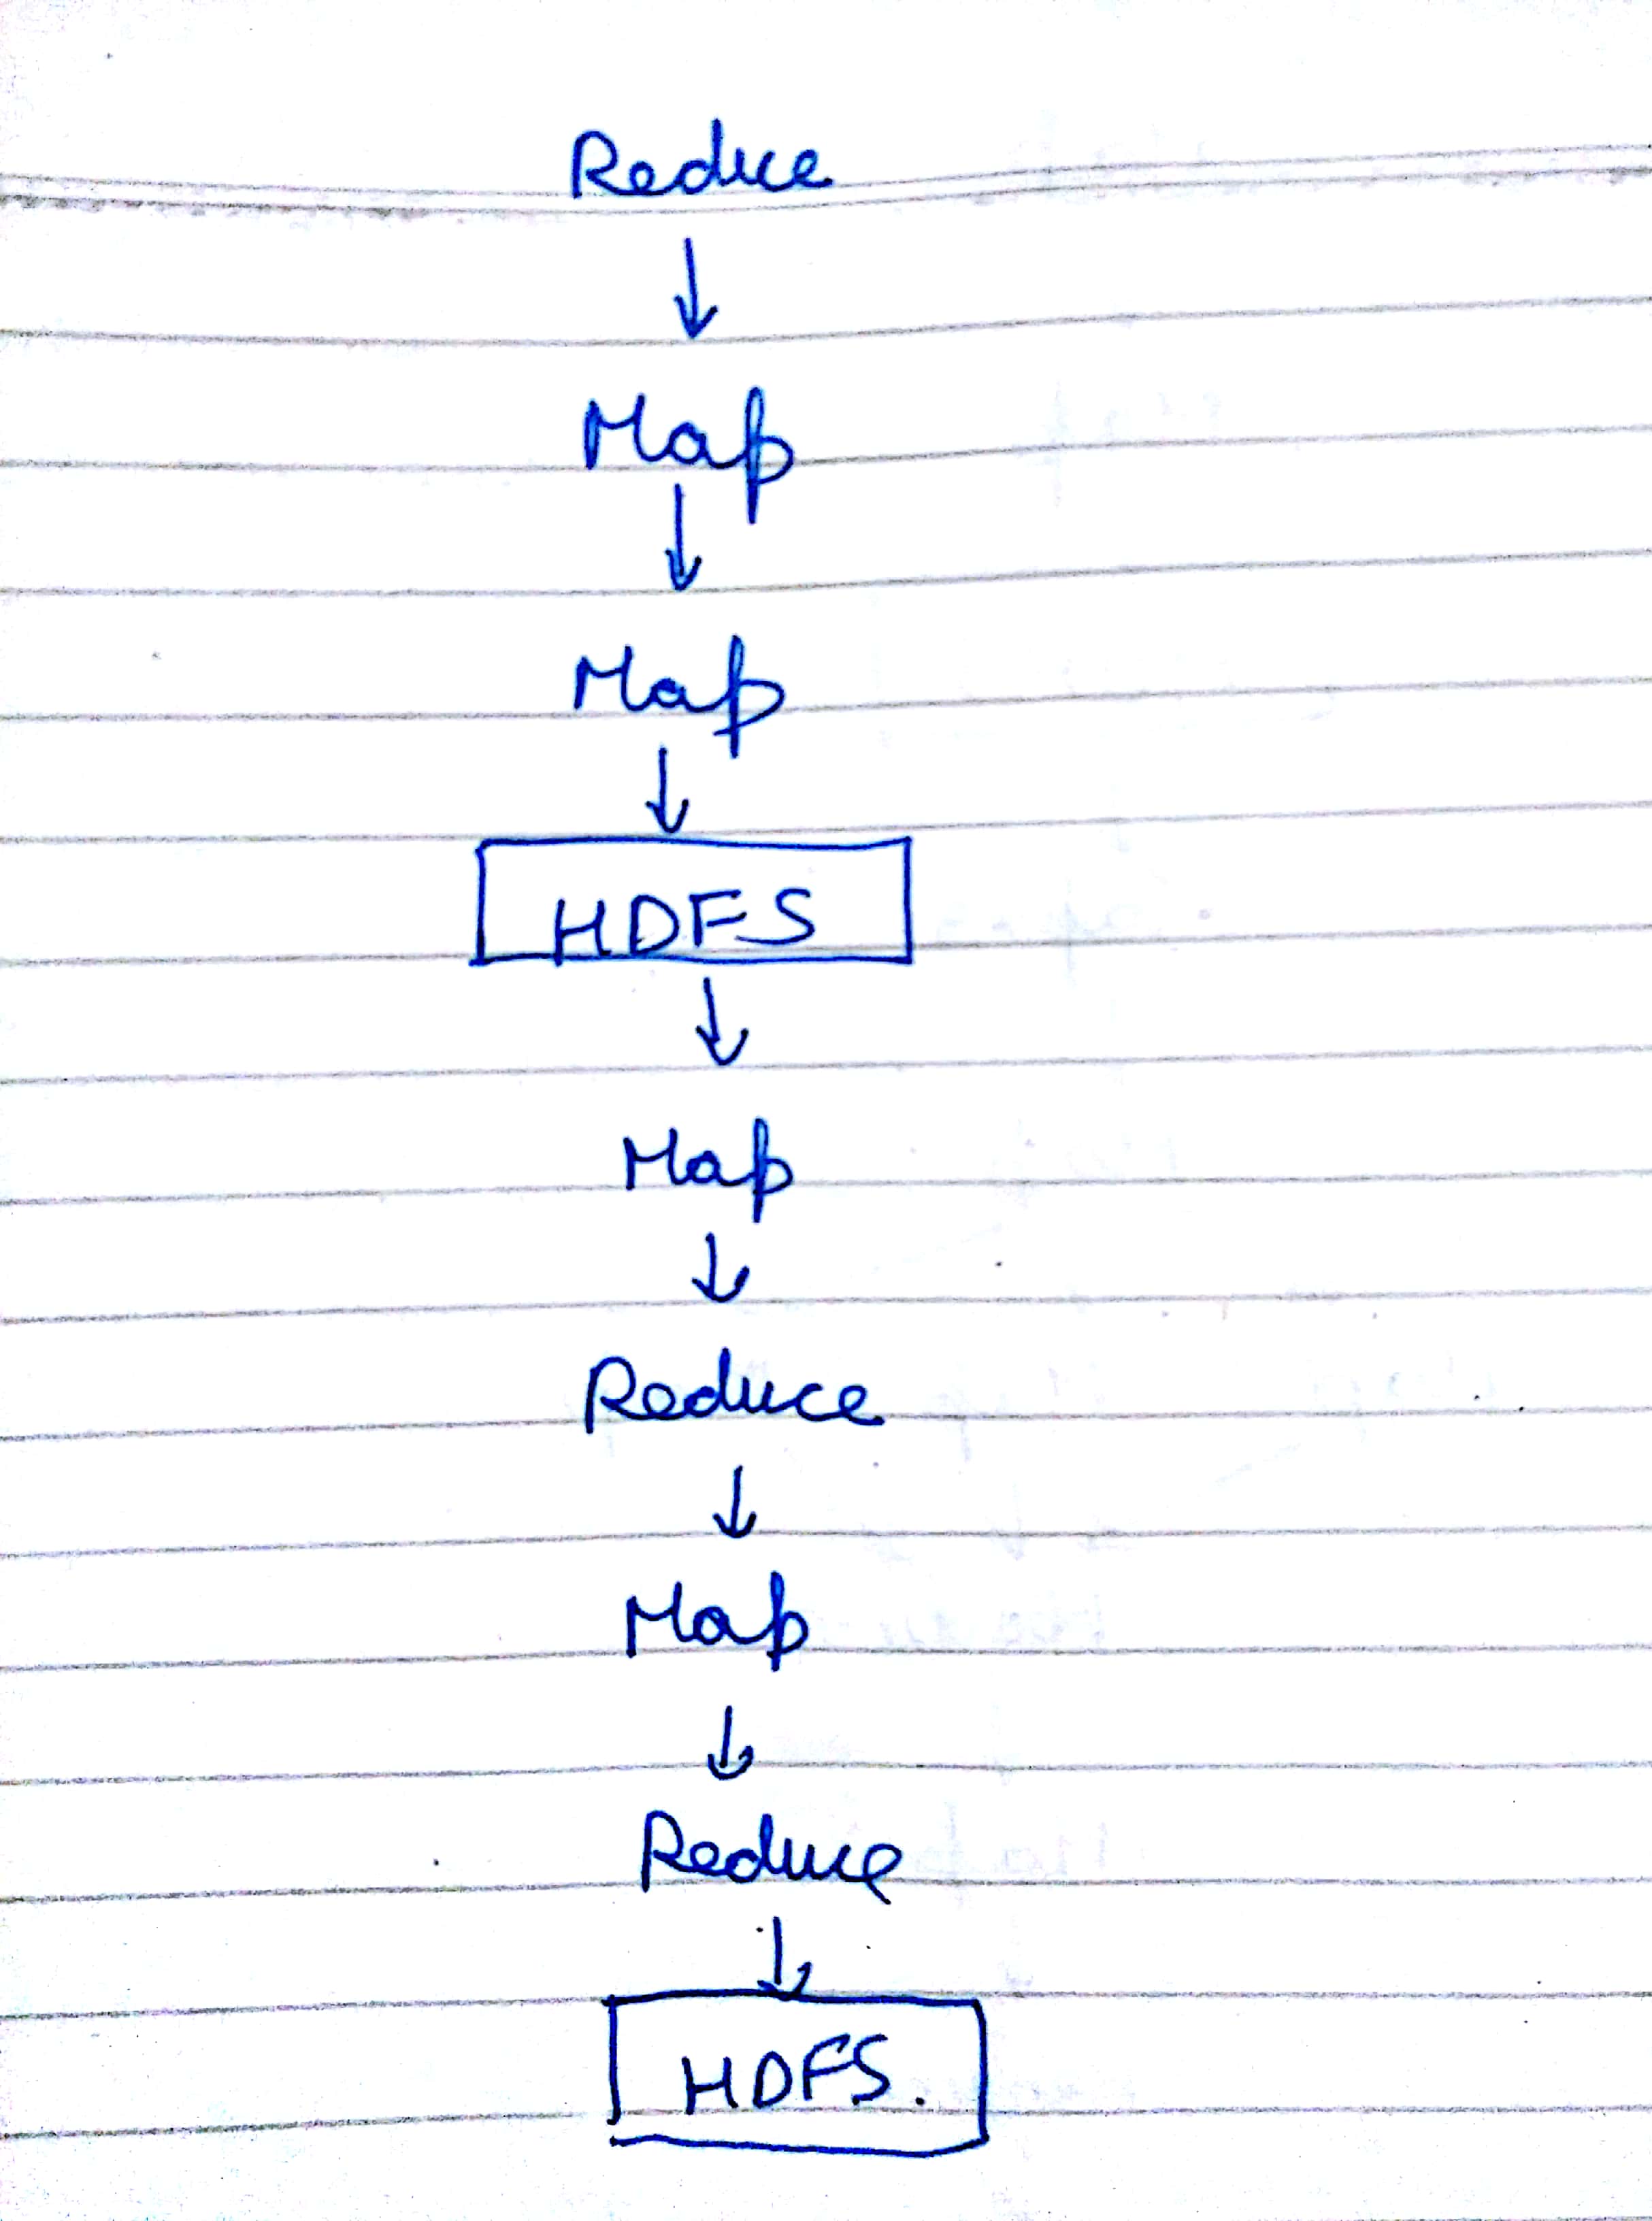 Reduce
↓
Map
↓
Map
↓
HDFS
↓
Map
↓
Reduce
↓
Map
↓
Reduce
↓
HDFS.